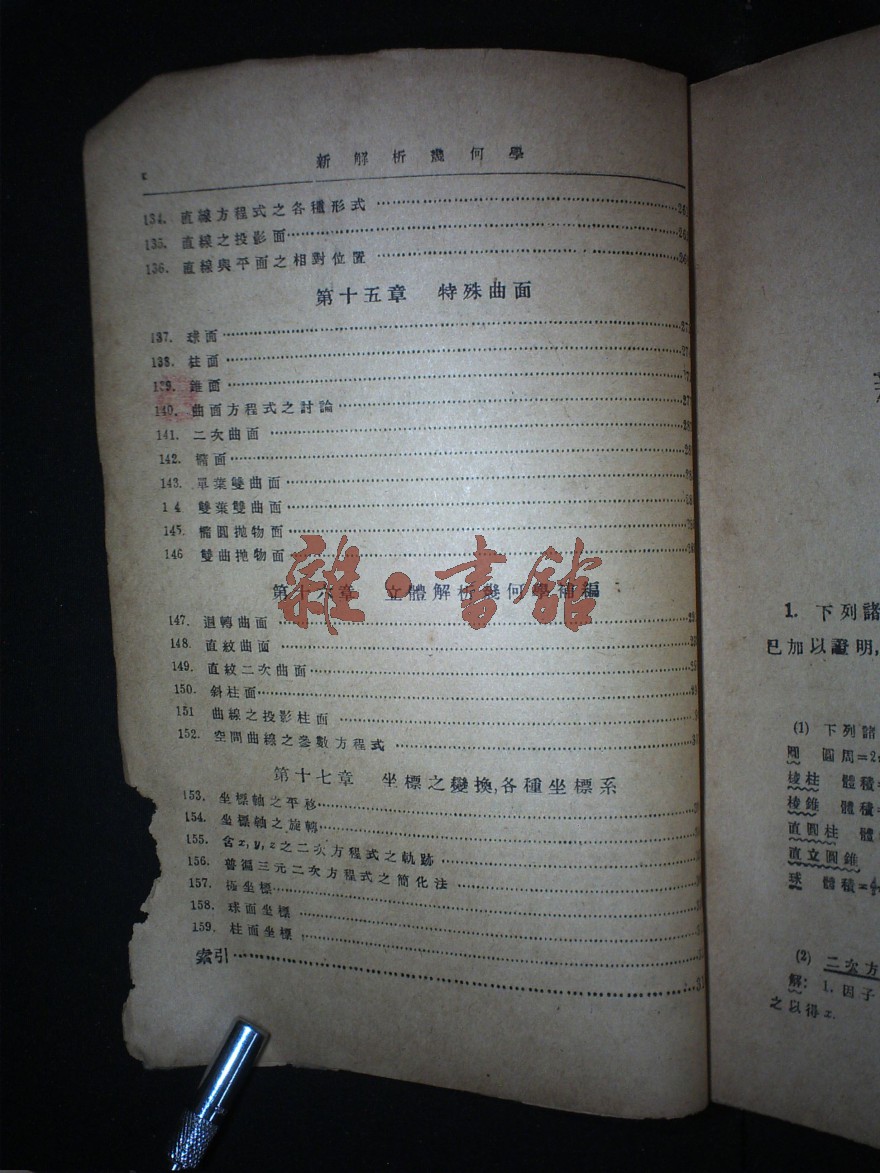 新解析幾何學
134. 直線方程式之各種形式
135. 直線之投影面
136. 直線與平面之相對位置
第十五章 特殊曲面
137. 球面
138. 柱面
139. 錐面
140. 曲面方程式之討論
141. 二次曲面
142. 橢面
143. 單葉雙曲面
1 4 雙葉雙曲面
145. 橢圓拋物面
146 雙曲拋物面
雜·書館
第十六章 立體解析幾何學補編
147. 迴轉曲面
148. 直紋曲面
149. 直紋二次曲面
150. 斜柱面
151 曲線之投影柱面
152. 空間曲線之參數方程式
第十七章 坐標之變換,各種坐標系
153. 坐標軸之平移
154. 坐標軸之旋轉
155. 含x, y, z之二次方程式之軌跡
156. 普遍三元二次方程式之簡化法
157. 極坐標
158. 球面坐標
159. 柱面坐標
索引
1. 下列諸
已加以證明,
(1) 下列諸
圓 圓周=2
棱柱 體積=
棱錐 體積=
直圓柱 體
直立圓錐
球 體積=
(2) 二次方
解: 1. 因子
之以得x.